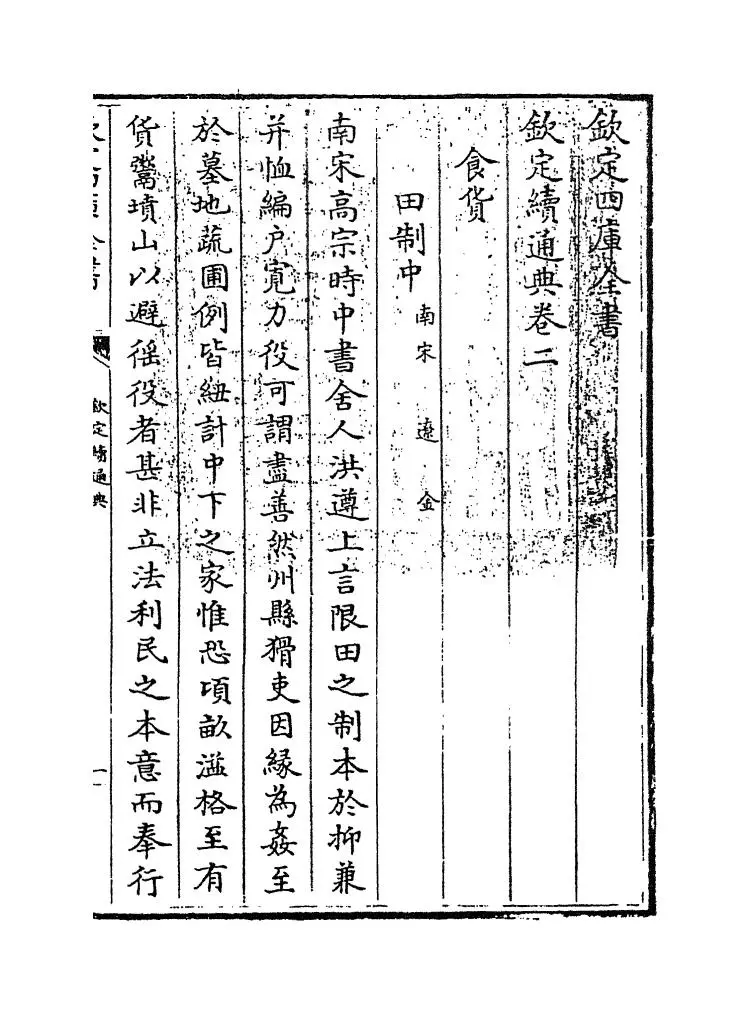 欽定四庫全書
欽定續通典卷二
食貨
田制中 南宋 遼 金
南宋高宗時中書舍人洪遵上言限田之制本於抑兼
并恤編户寛力役可謂盡善然州縣猾吏因緣為姦至
於墓地蔬圃例皆紐計中下之家惟恐頃畝溢格至有
貨鬻墳山以避徭役者甚非立法利民之本意而奉行
欽定續通典
一